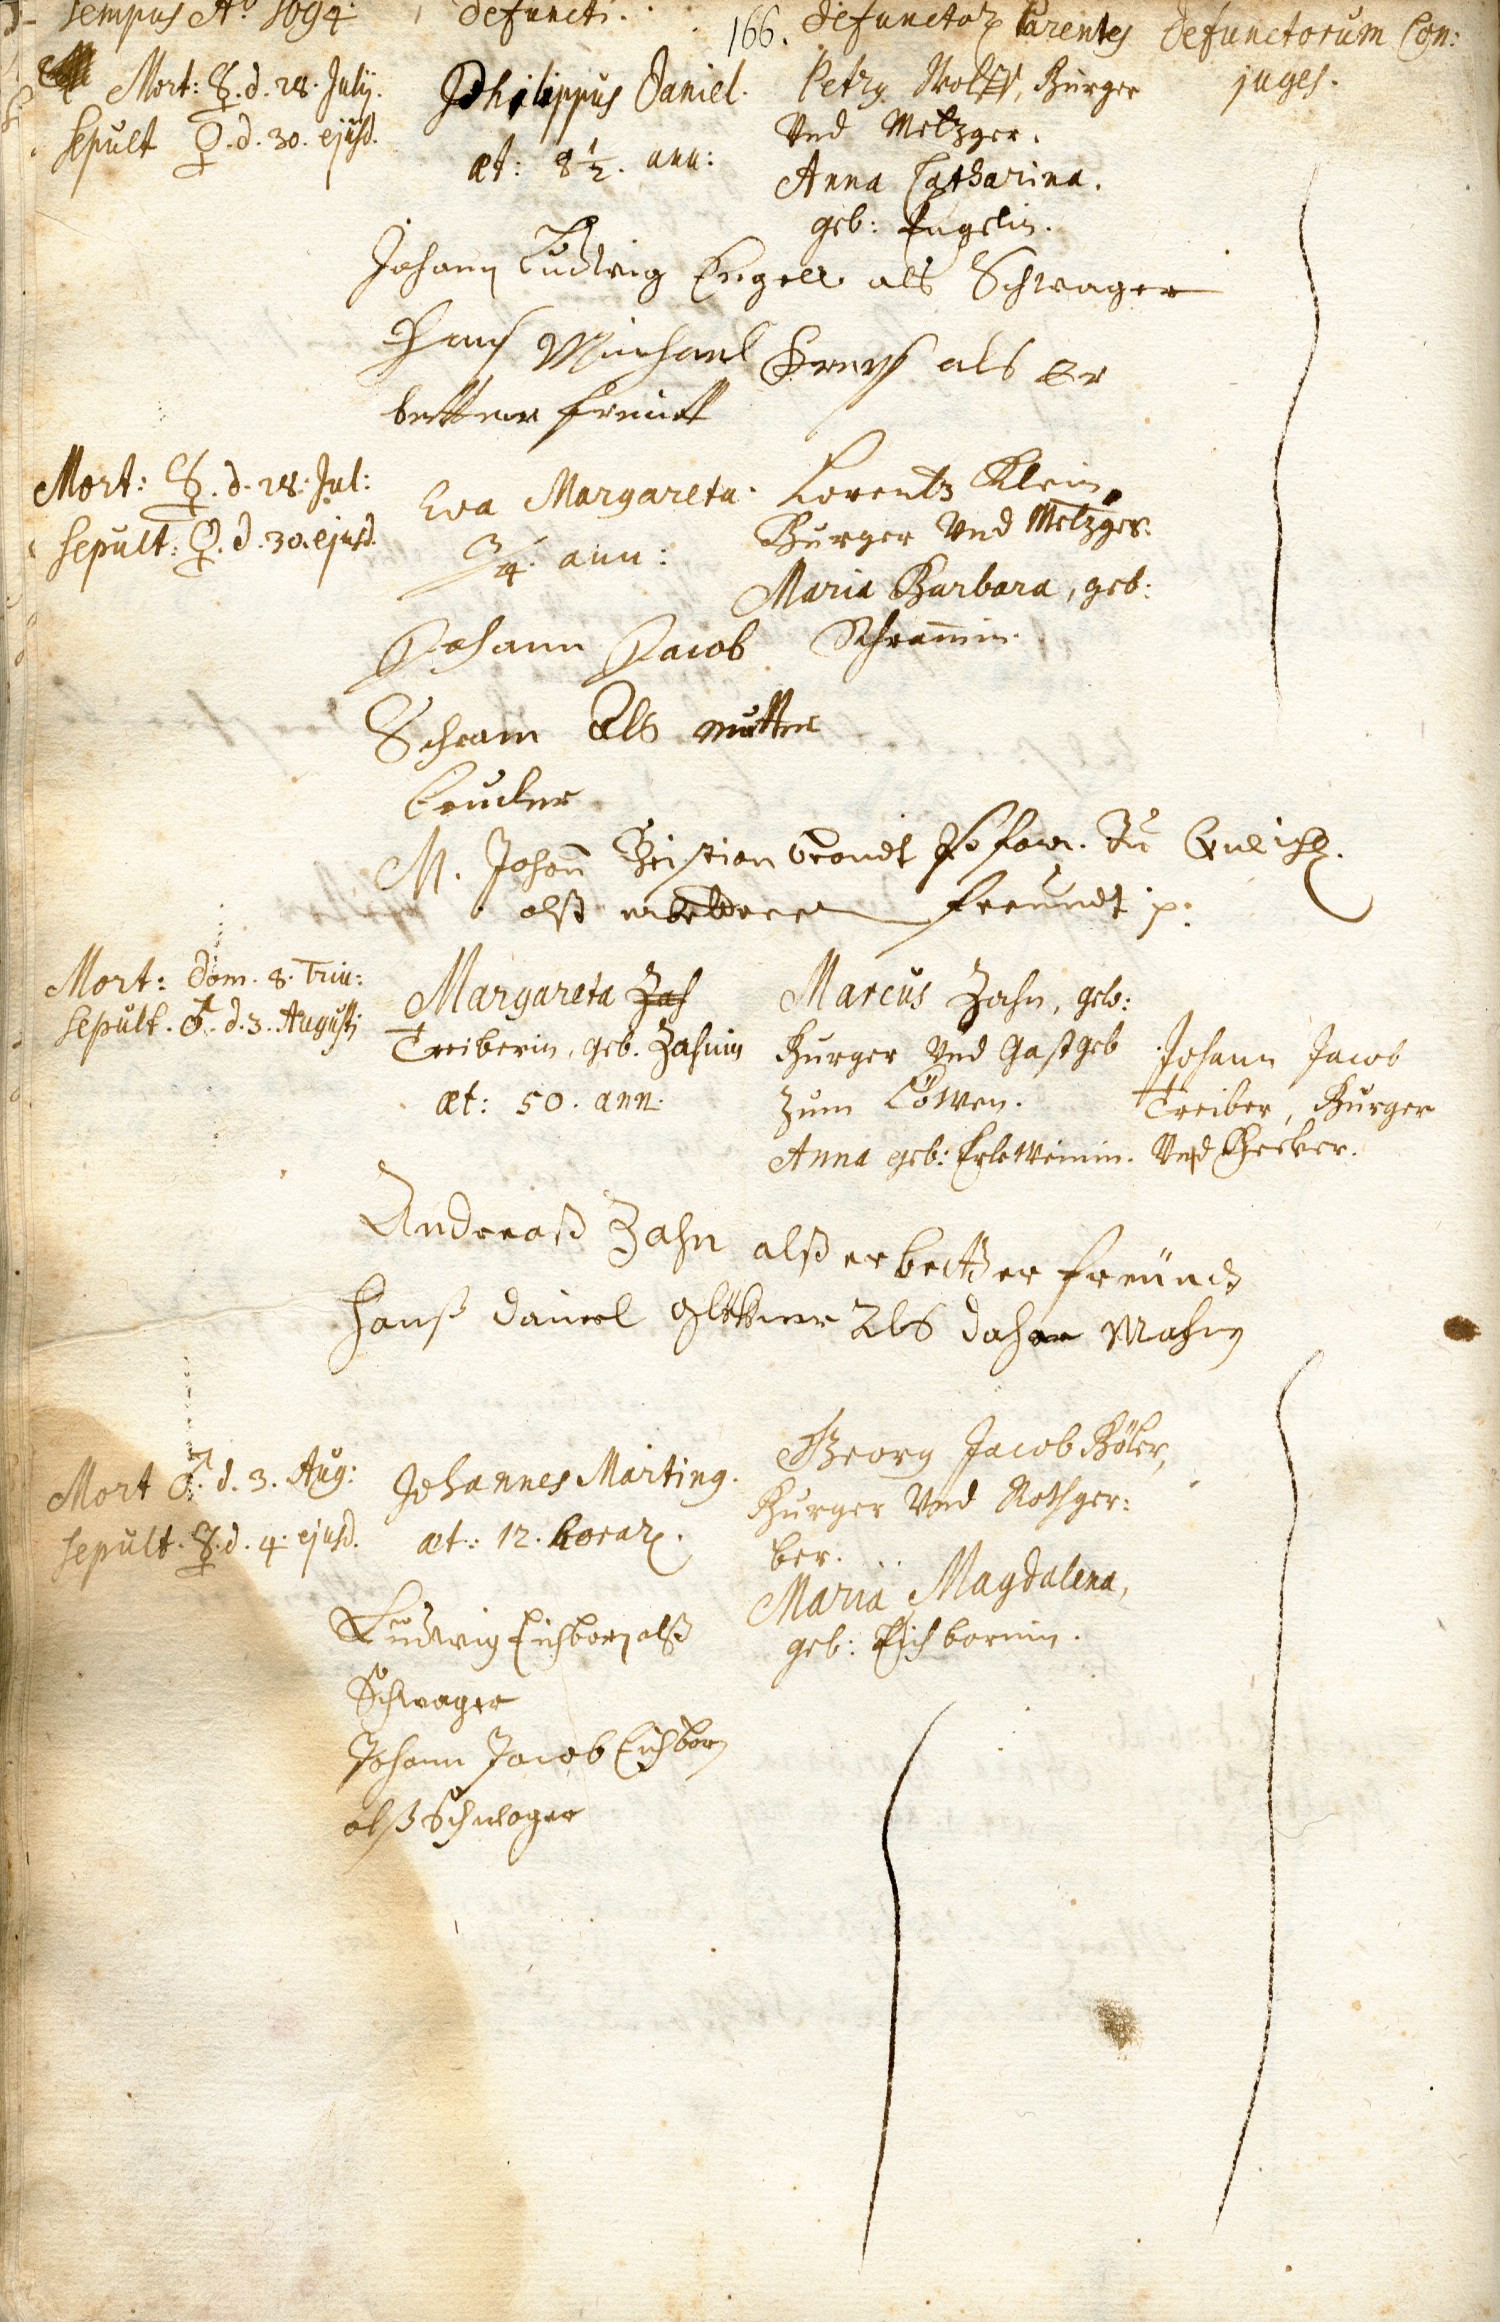 Tempus Aõ 1694.
defuncti.
166.
defunctor Parentes
defunctorum Con:
juges.
Mort: ☿. d. 28. Julij.
Sepult ♀. d. 30. ejusd.
Philippus Daniel.
æt: 8½. ann:
Petrus Wolff, Burger
Und Metzger.
Anna Catharina.
geb: Engelin.
Johann Ludwig Engell als Schwager
Hans Michael als Er
better freindt
Mort: ☿. d. 28. Jul:
Sepult: ♀. d. 30. ejusd.
Eva Margareta.
¾. ann:
Lorentz Klein,
Burger Und Metzger.
Maria Barbara, geb:
Schram̄in.
Johann Jacob
Schram Als mutter
bruder
M. Johañ Christian Brandt Zu
alß erbettener freundt p:
Mort: Dom. 8. Trin:
Sepult. ♂. d. 3. Augusti
Margareta Zah
Treiberin, geb. Zahnin
æt: 50. ann.
Marcus Zahn, gew:
Burger Und Gastgeb
Zum Löwen.
Anna geb: Erleweinin.
Johann Jacob
Treiber, Burger
Und Becker.
Andreaß Zahn alß erbettzer freünd
Hanß Daniel Als
Mort ♂. d. 3. Aug:
Sepult. ☿. d. 4. ejusd.
Johannes Marting.
æt: 12. horar.
Georg Jacob Böler,
Burger Und Rothger:
ber.
Maria Magdalena,
geb: Eichbornin.
Ludwig Eichborn alß
Schwager
Johann Jacob Eichborn
alß Schwager